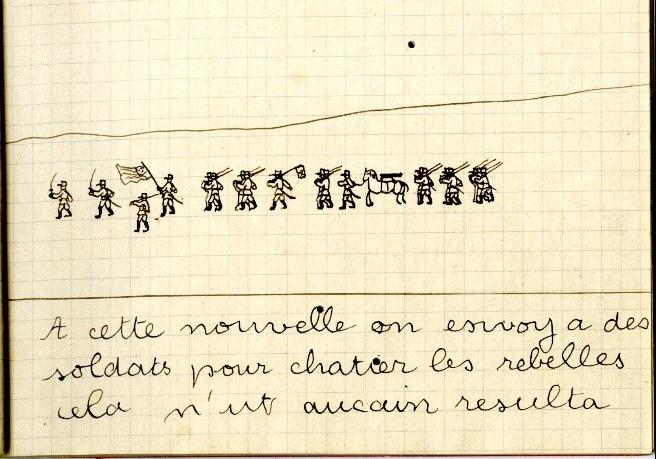 A cette nouvelle on envoya des
soldats pour chatier les rebelles
cela n'ut aucain resulta